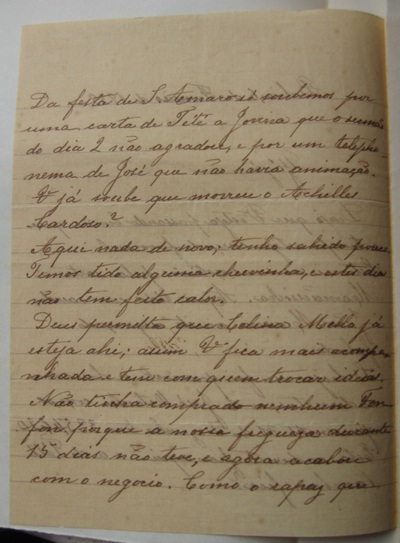 Da festa de S. Amaro só soubemos por
uma carta de Tété a Jonina que o sermão
do dia 2 não agradou, e por um telepho-
nema de José que não havia animação.
V já soube que morreu o Achilles
Cardoso?
Aqui nada de novo, tenho sahido pouco.
Temos tido alguma chuvinha, e estes dias
não tem feito calor.
Deus permitta que Mello já
esteja ahi; assim V fica mais acompa-
nhada e tem com quem trocar idéias.
Não tinha comprado nenhum Fon
fon porque a nossa fregueza durante
15 dias não teve, e agora acabou
com o negocio. Como o rapaz que